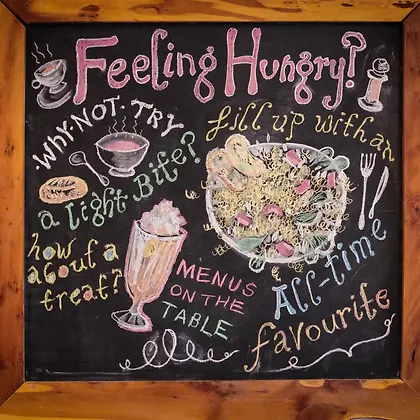 Feeling Hungry?
WHY·NOT·TRY
a Light Bite?
fill up with an
All-time
favourite
how
about a
treat?
MENUS
ON THE
TABLE